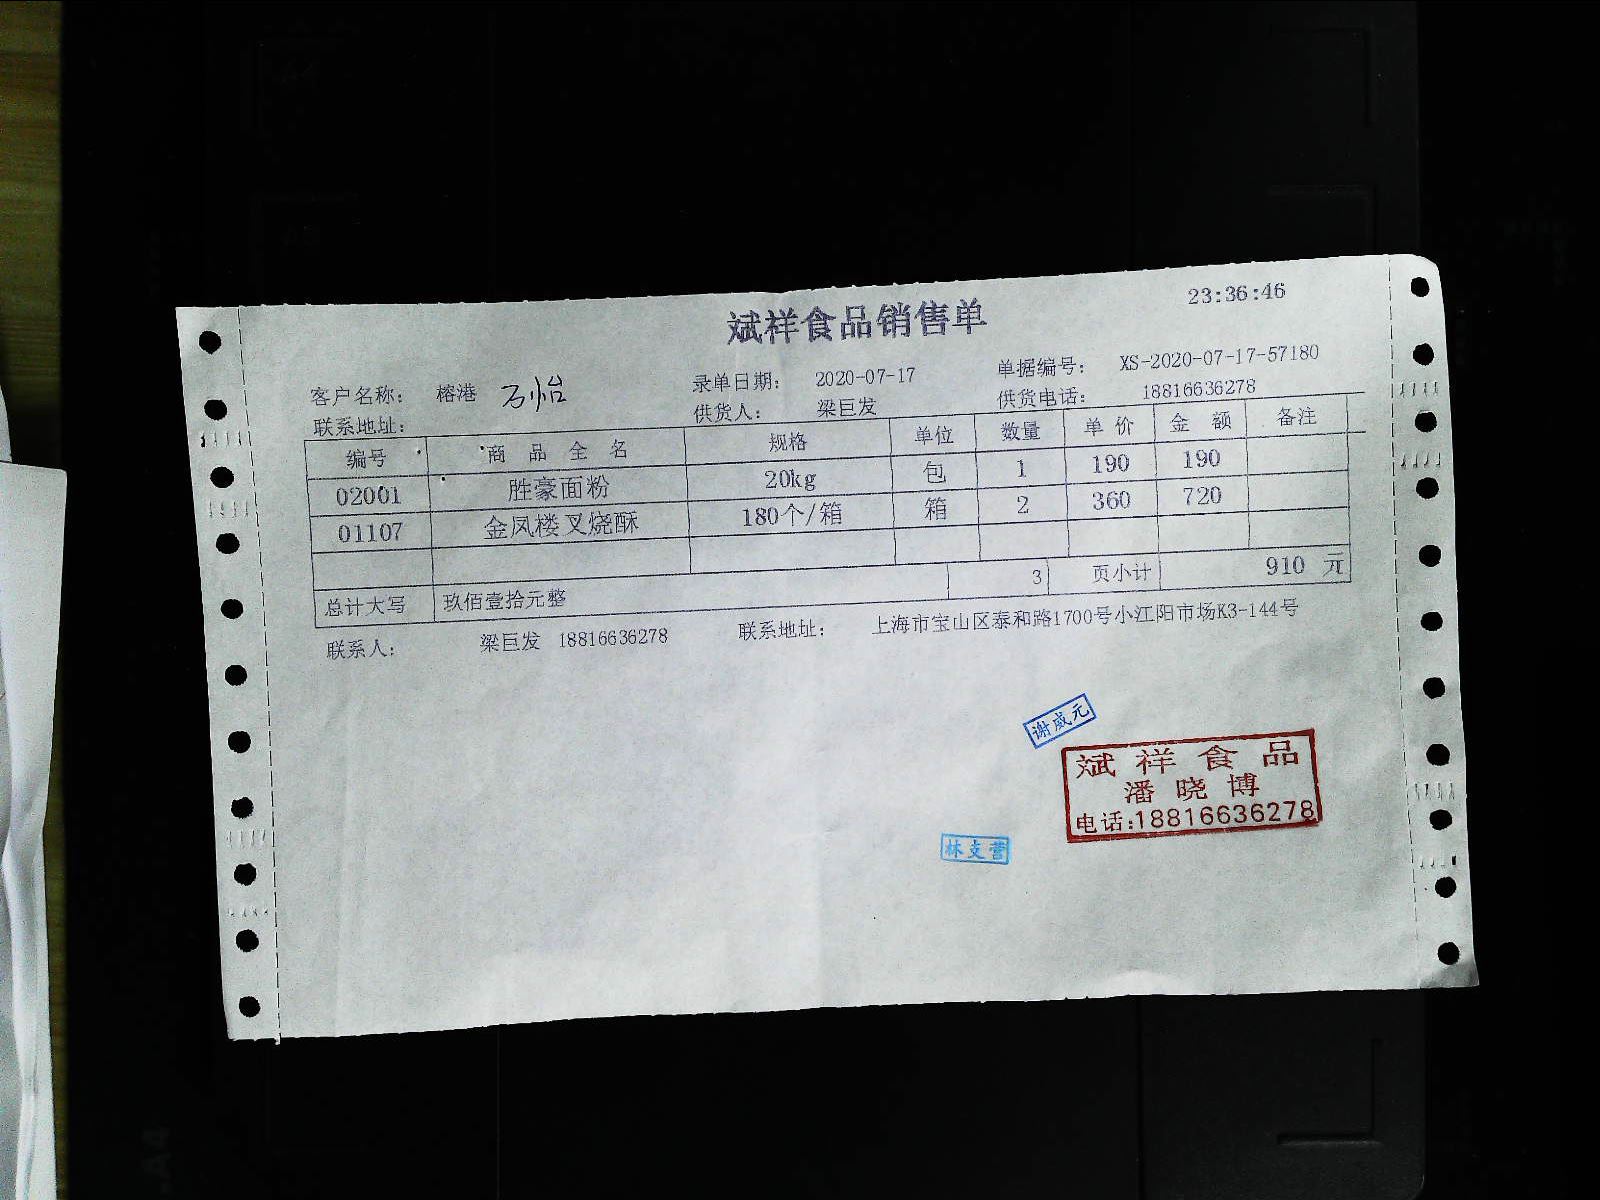 23:36:46
斌祥食品销售单
客户名称： 榕港 录单日期： 2020-07-17 单据编号： XS-2020-07-17-57180
联系地址： 供货人： 梁巨发 供货电话： 18816636278
编号 商品全名 规格 单位 数量 单价 金额 备注
02001 胜豪面粉 20kg 包 1 190 190
01107 金凤楼叉烧酥 180个/箱 箱 2 360 720
总计大写 玖佰壹拾元整 3 页小计 910 元
联系人： 梁巨发 18816636278 联系地址： 上海市宝山区泰和路1700号小江阳市场K3-144号
谢威元
斌祥食品
潘晓博
电话:18816636278
林支营